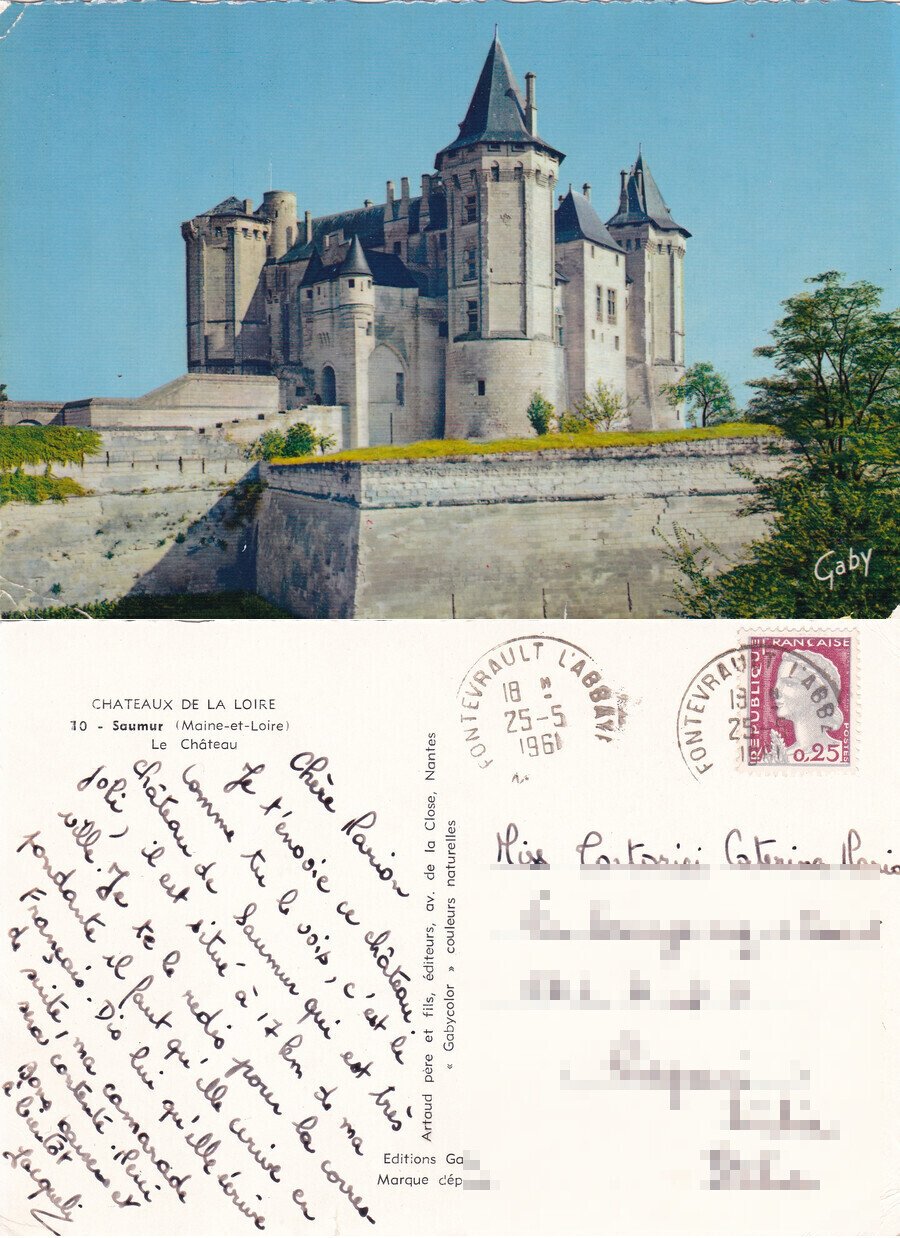 Gaby
CHATEAUX DE LA LOIRE
10 - Saumur (Maine-et-Loire)
Le Château
Chère Marion
Je t'envoie ce château.
Comme tu le vois, c'est le
château de Saumur qui est très
joli, il est situé à 17 km de ma
ville. Je te le redis pour la corres-
pondante il faut qu'elle écrive en
Français. Dis lui qu'elle écrive
de suite, ma camarade
sera contente. Merci
Bons baisers et
à bientôt
Jacquely
Artaud père et fils, éditeurs, av. de la Close, Nantes
« Gabycolor » couleurs naturelles
Editions Ga
Marque dép
FONTEVRAULT L'ABBAYE
18 H
25-5
1961
FONTEVRAULT L'ABBA
18
25-5
1961
REPUBLIQUE FRANÇAISE
0,25
POSTES
Miss Caterina Maria